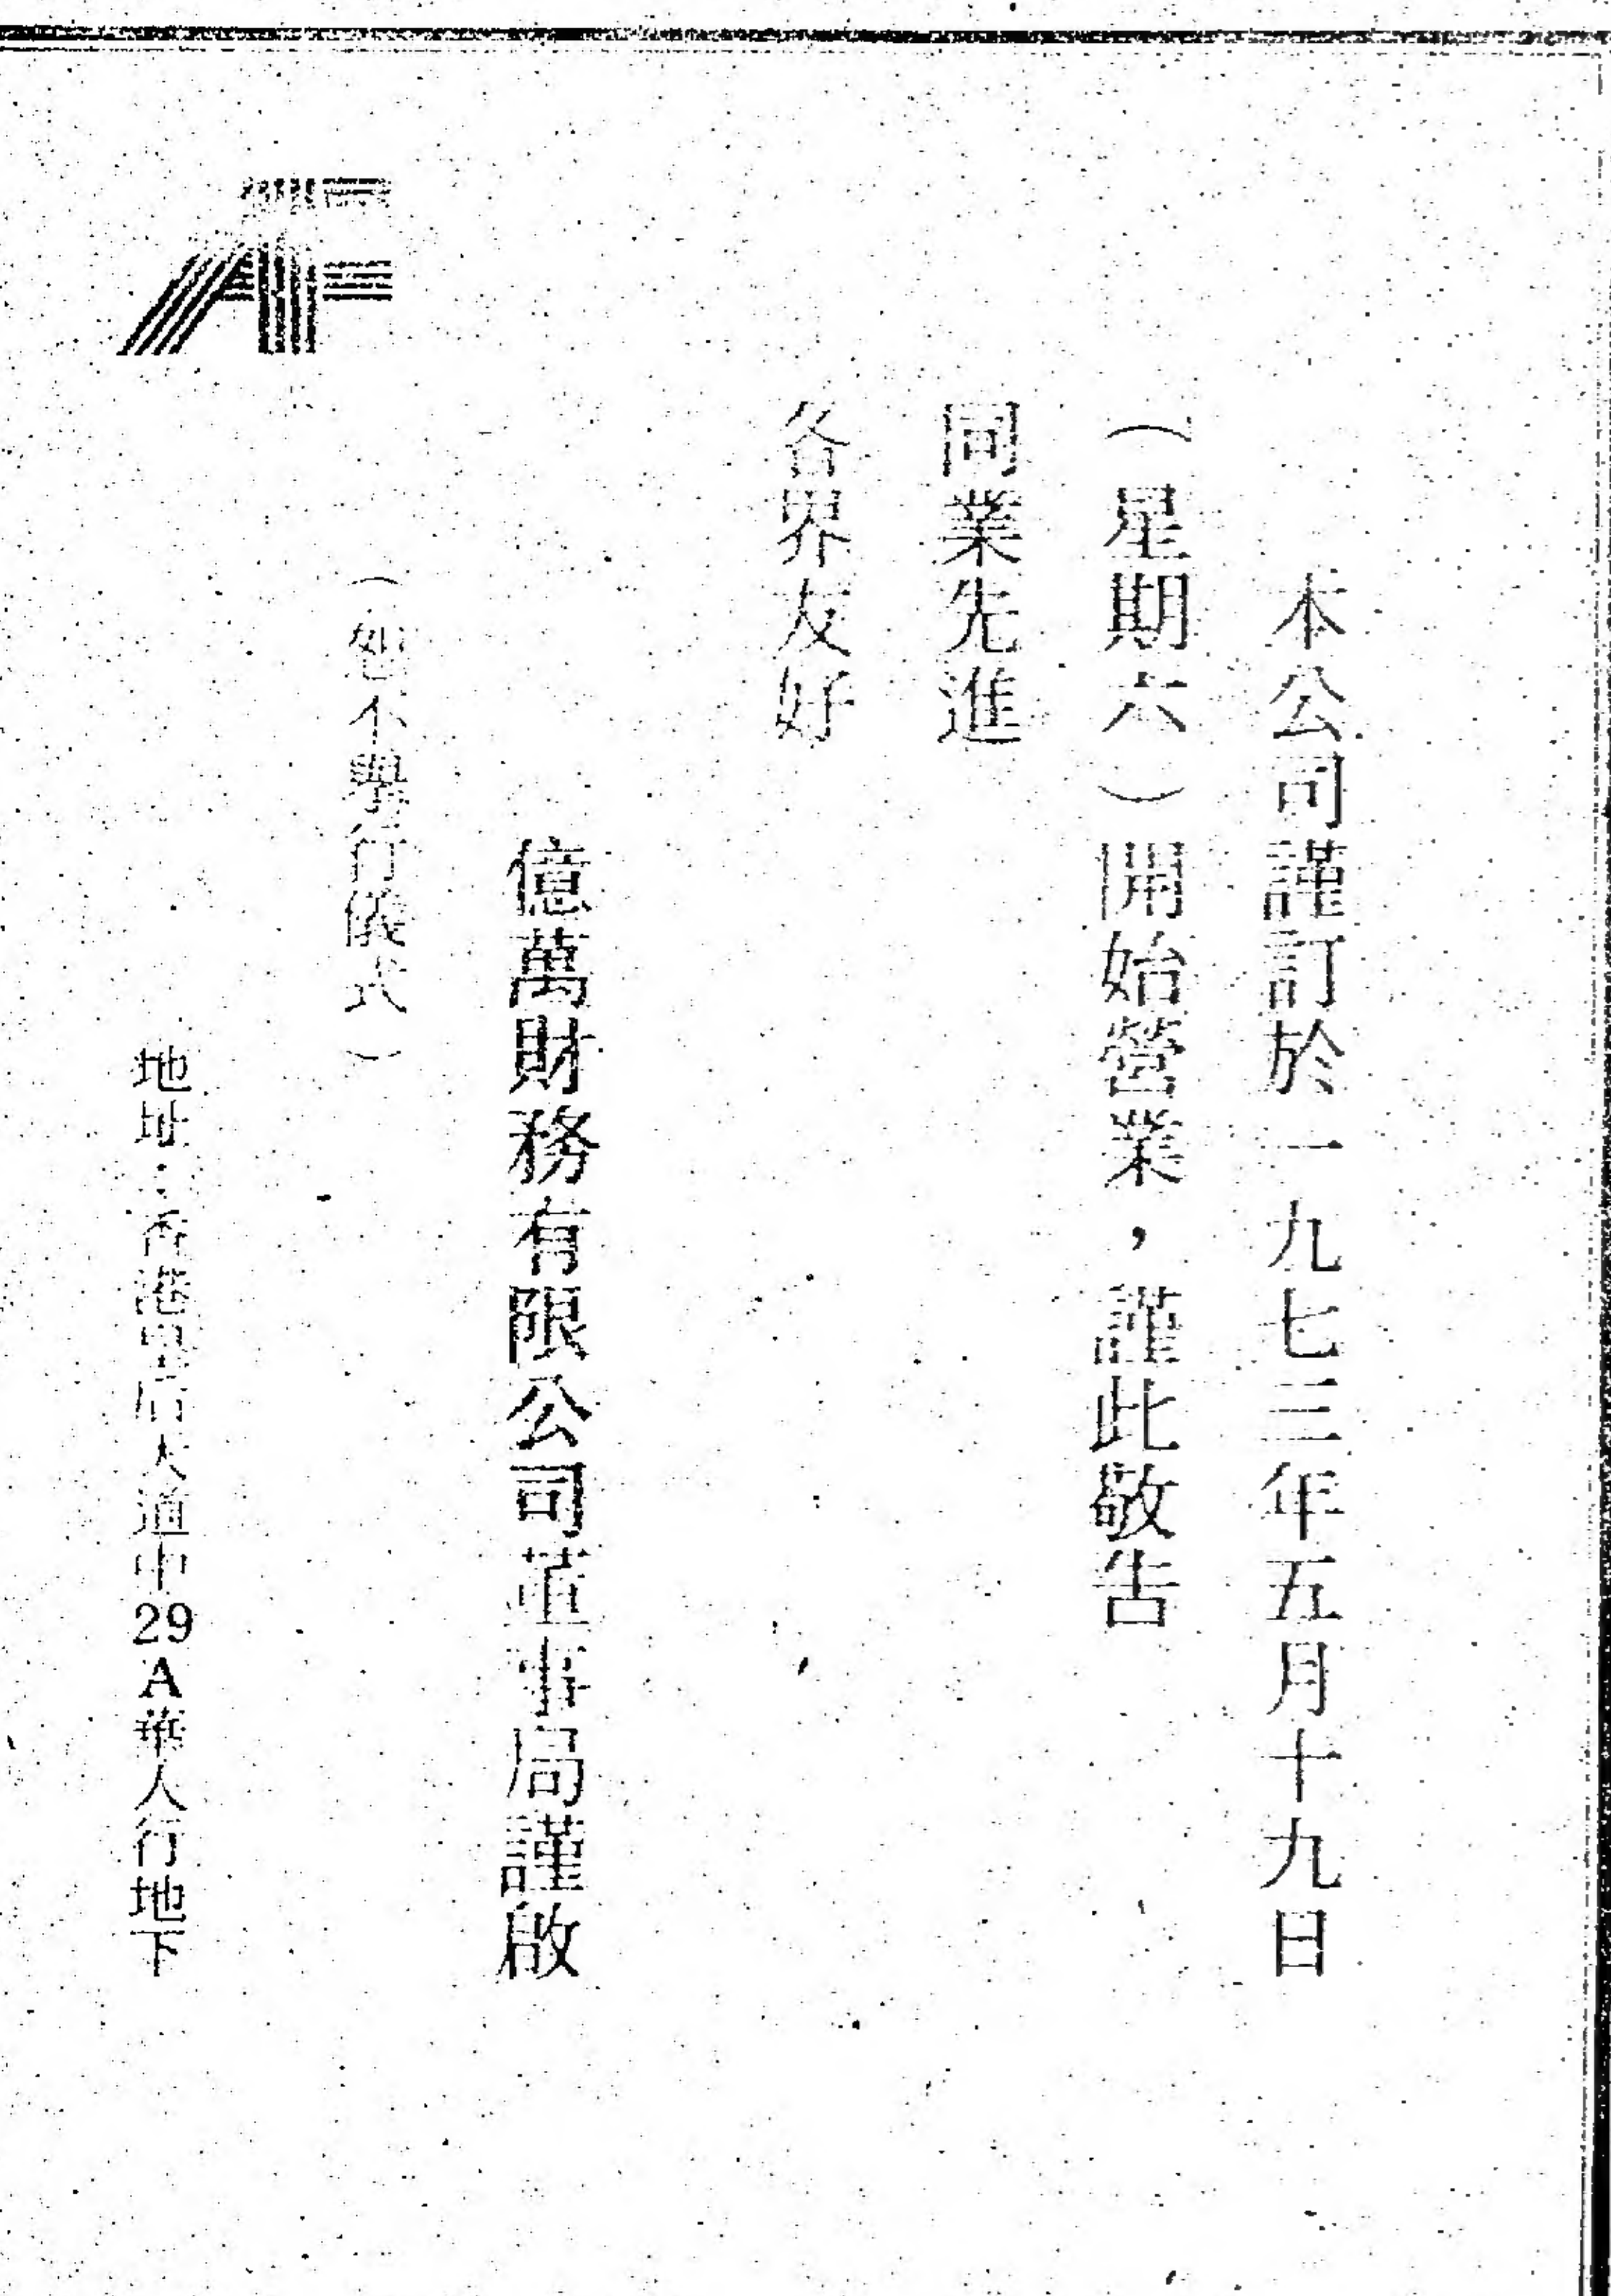 本公司謹訂於一九七三年五月十九日
（星期六）開始營業，謹此敬告
同業先進
各界友好
億萬財務有限公司董事局謹啟
（恕不舉行儀式）
地址：香港皇后大道中29A華人行地下
AF